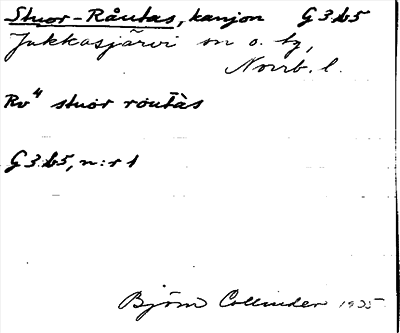 Stuor-Råutas, kanjon G3b5
Jukkasjärvi sn o. tg,
Norrb. l.
Rv⁴ stuor routàs
G3b5, n:r 1
Björn Collinder 1935